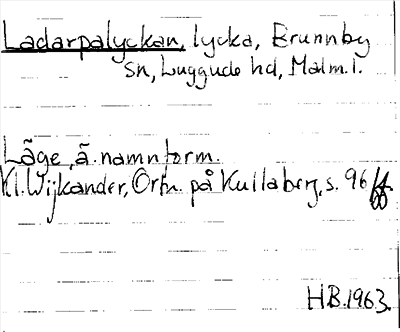 Ladarpalyckan, lycka, Brunnby
sn, Luggude hd, Malm. l.
Läge, ä. namnform.
Kl. Wijkander, Ortn. på Kullaberg, s. 96 ff.
HB. 1963.